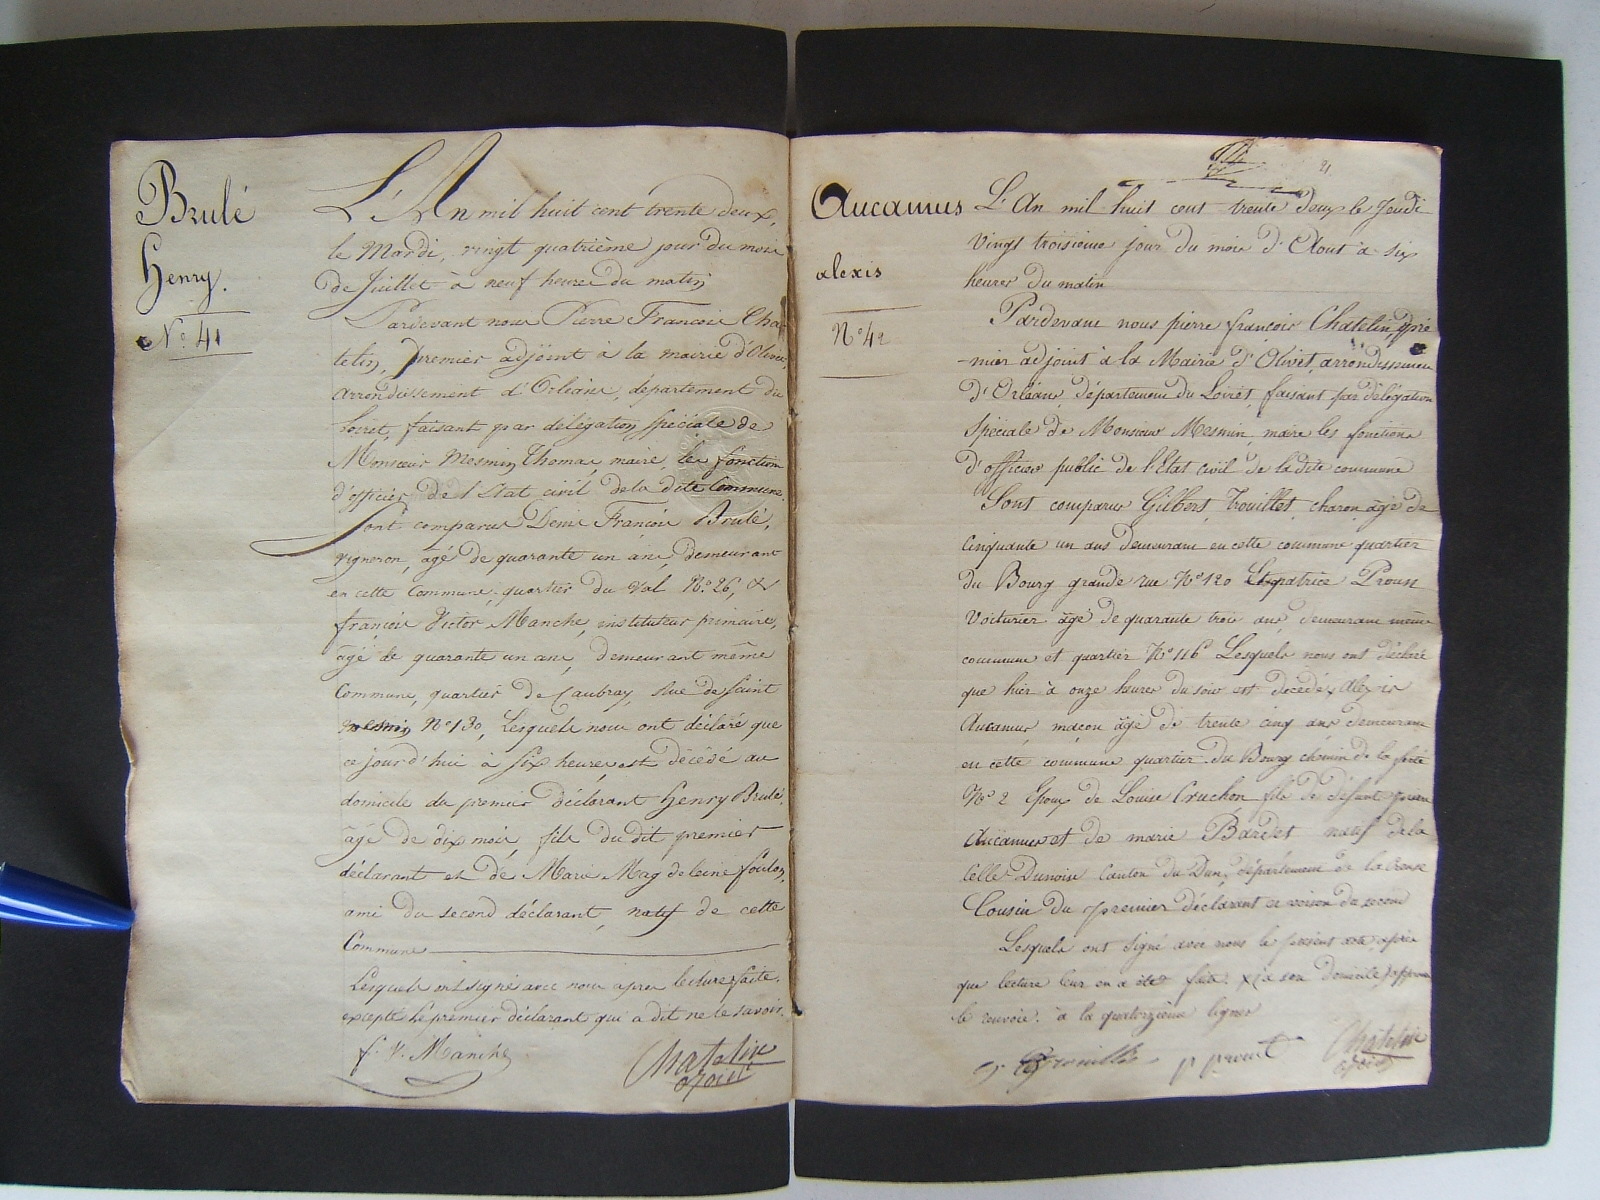 Brulé
Henry.
N.º 41
L'An mil huit cent trente deux,
le Mardi, vingt quatrième jour du mois
de Juillet à neuf heures du matin
Pardevant nous Pierre François Cha-
telin, premier adjoint à la mairie d'Olivet,
arrondissement d'Orléans, département du
Loiret, faisant par délégation spéciale de
Monsieur Mesmin Thomas, maire, les fonctions
d'officier de l'Etat civil de la dite Commune.
Sont comparus Denis François Brulé,
vigneron, âgé de quarante un ans, demeurant
en cette Commune, quartier du Val N.º 26, &
françois Victor Manche, instituteur primaire,
âgé de quarante un ans, demeurant même
Commune, quartier de Caubray, Rue de Saint
mesmin N.º 130, Lesquels nous ont déclaré que
ce jourd'hui à six heures est décédé au
domicile du premier déclarant Henry Brulé,
âgé de dix mois, fils du dit premier
déclarant et de Marie Magdeleine foulon,
ami du second déclarant, natif de cette
Commune
Lesquels ont signé avec nous après lecture faite,
excepté le premier déclarant qui a dit ne le savoir.
f. V. Manche
Chatelin
adjoint
21
Aucamus
alexis
N.º 42
L'An mil huit cent trente deux le Jeudi
vingt troisième jour du mois d'Aout à six
heures du matin
Pardevant nous pierre françois Chatelin pre
-mier adjoint à la Mairie d'Olivet, arrondissement
d'Orléans, département du Loiret, faisant par délégation
Spéciale de Monsieur Mesmin, maire les fonctions
d'officier public de l'Etat civil de la dite commune
Sont comparus Gilbert Trouillet, charon âgé de
Cinquante un ans demeurant en cette commune quartier
du Bourg grande rue N.º 120 Et patrice Proust
Voiturier âgé de quarante trois ans, demeurant même
commune et quartier N.º 116 Lesquels nous ont déclaré
que hier à onze heures du soir est décédé x Alexis
Aucamus maçon âgé de trente cinq ans demeurant
en cette commune quartier du Bourg chemin de la ferté
N.º 2 Epoux de Louise Cruchon fils de défunt
Aucamus et de marie Bardet natif de la
Celle Dunoise Canton du Dun, département de la Creuse
Cousin du premier déclarant et voisin du second
Lesquels ont signé avec nous le présent acte après
que lecture leur en a été faite. x (à son domicile) approuvé
le renvoie. à la quatorzième lignes
g. Trouillet
p proust
Chatelin
adjoint